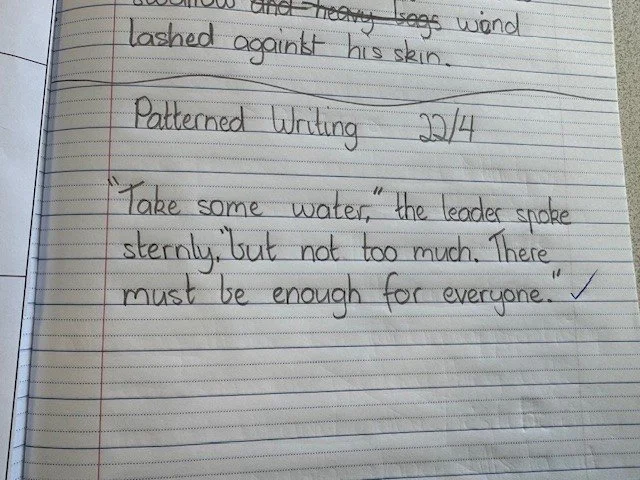 and heavy legs wind
lashed against his skin.
Patterned Writing 22/4
"Take some water," the leader spoke
sternly, "but not too much. There
must be enough for everyone." ✓